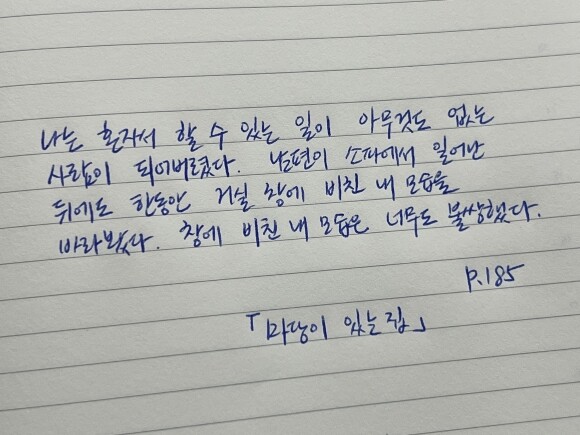 나는 혼자서 할 수 있는 일이 아무것도 없는
사람이 되어버렸다. 남편이 소파에서 일어난
뒤에도 한동안 거실 창에 비친 내 모습을
바라봤다. 창에 비친 내 모습은 너무도 불쌍했다.
p.185
「마당이 있는 집」